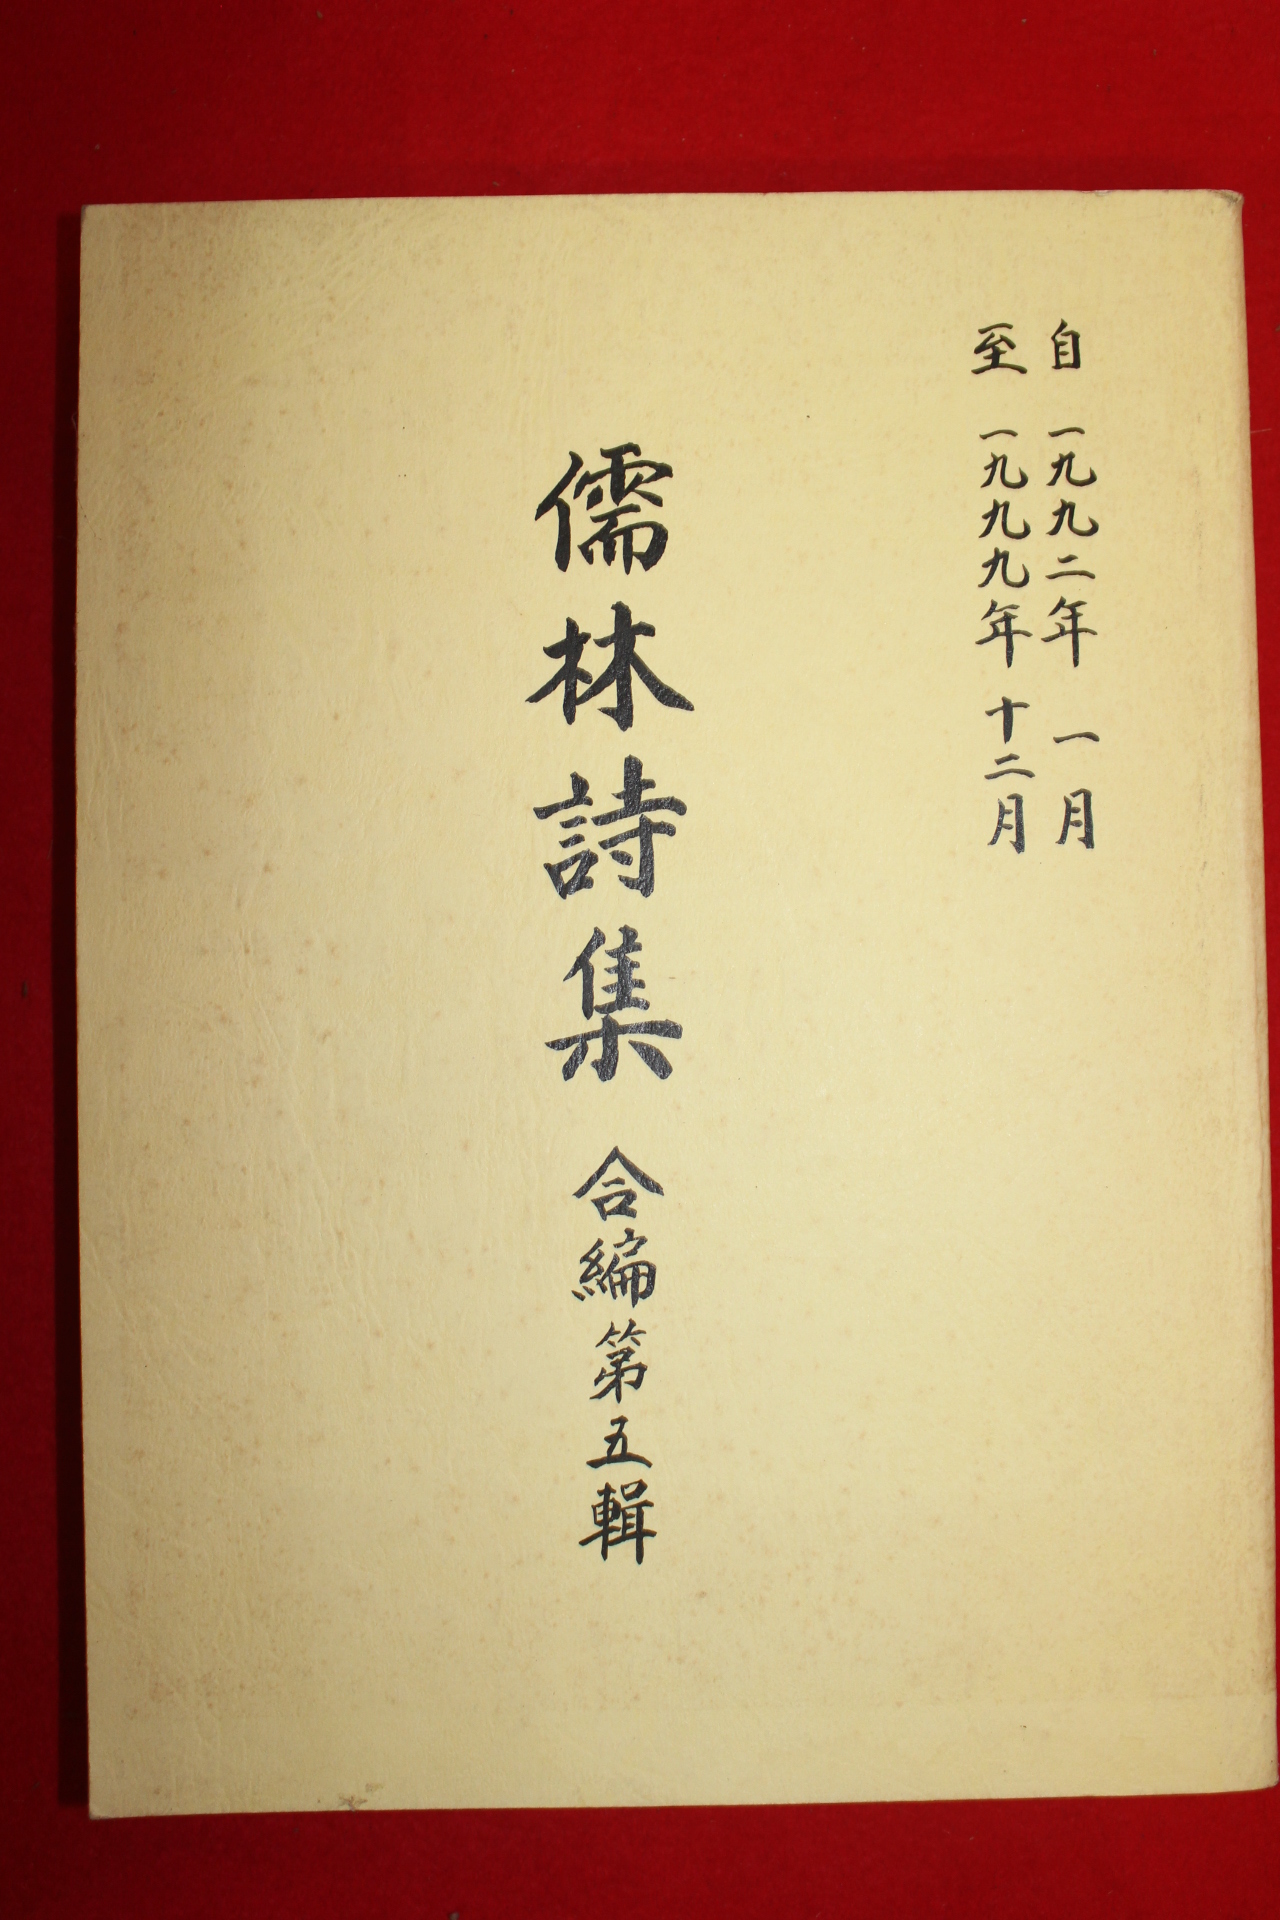 自 一九九二年 一月
至 一九九九年 十二月
儒林詩集 合編第五輯